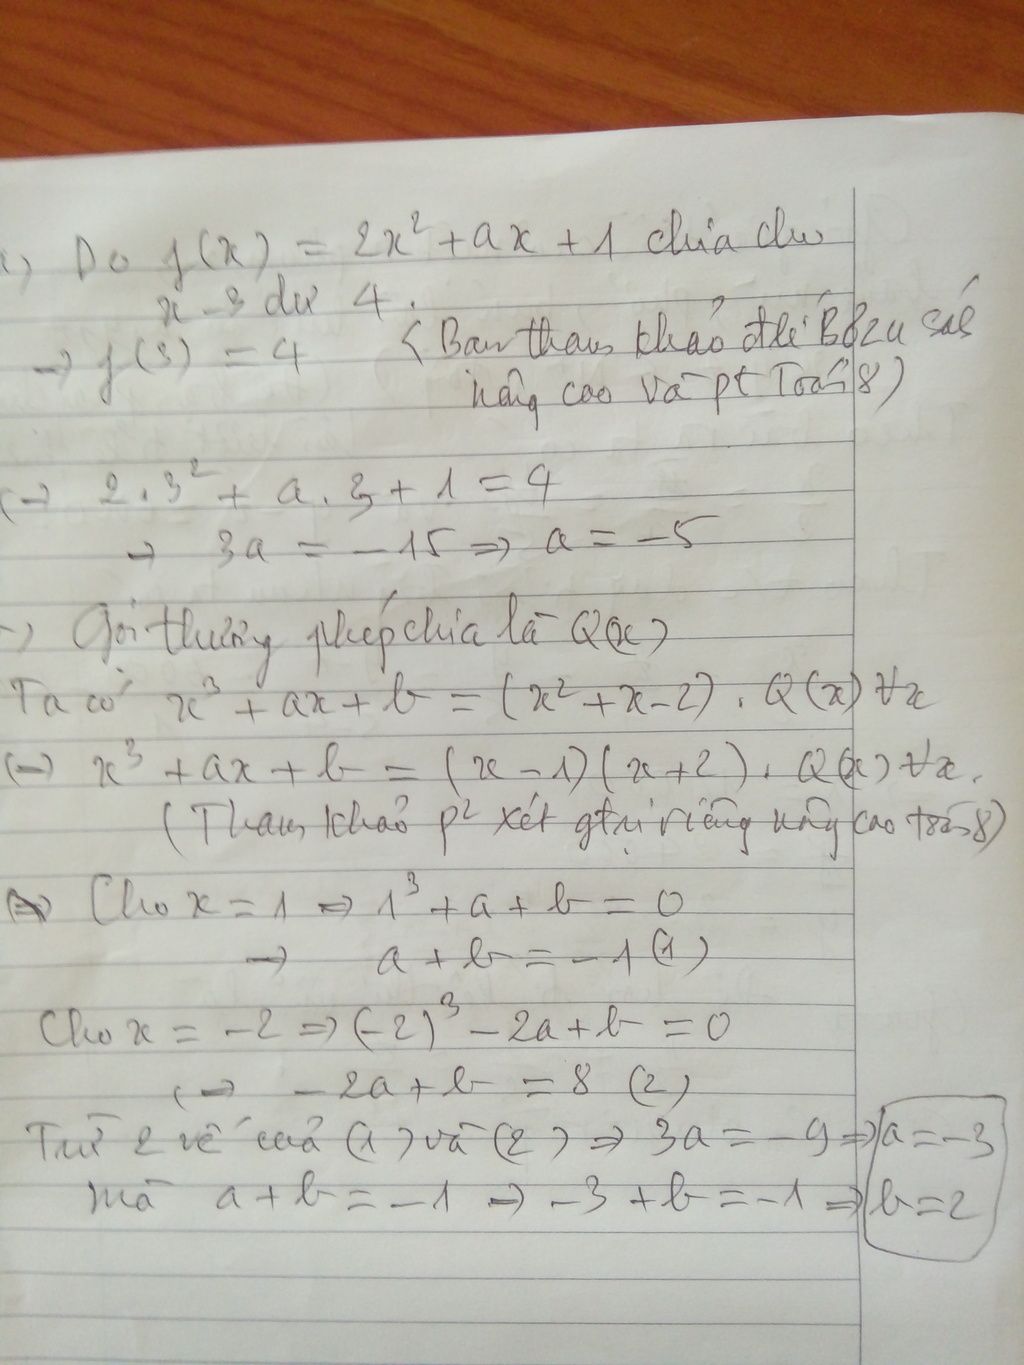 Do f(x) = 2x² + ax + 1 chia cho
x - 3 dư 4.
→ f(3) = 4 (Bạn tham khảo đlí Bơzu sác
nâng cao và pt Toán 8)
(→ 2.3² + a.3 + 1 = 4
→ 3a = -15 => a = -5
Gọi thương phép chia là Q(x)
Ta có x³ + ax + b = (x² + x - 2). Q(x) ∀x
(→ x³ + ax + b = (x - 1)(x + 2). Q(x) ∀x.
(Tham khảo p² xét gtrị riêng nâng cao toán 8)
=> Cho x = 1 => 1³ + a + b = 0
→ a + b = -1 (1)
Cho x = -2 => (-2)³ - 2a + b = 0
(→ -2a + b = 8 (2)
Trừ 2 vế của (1) và (2) => 3a = -9 => a = -3
mà a + b = -1 → -3 + b = -1 => b = 2